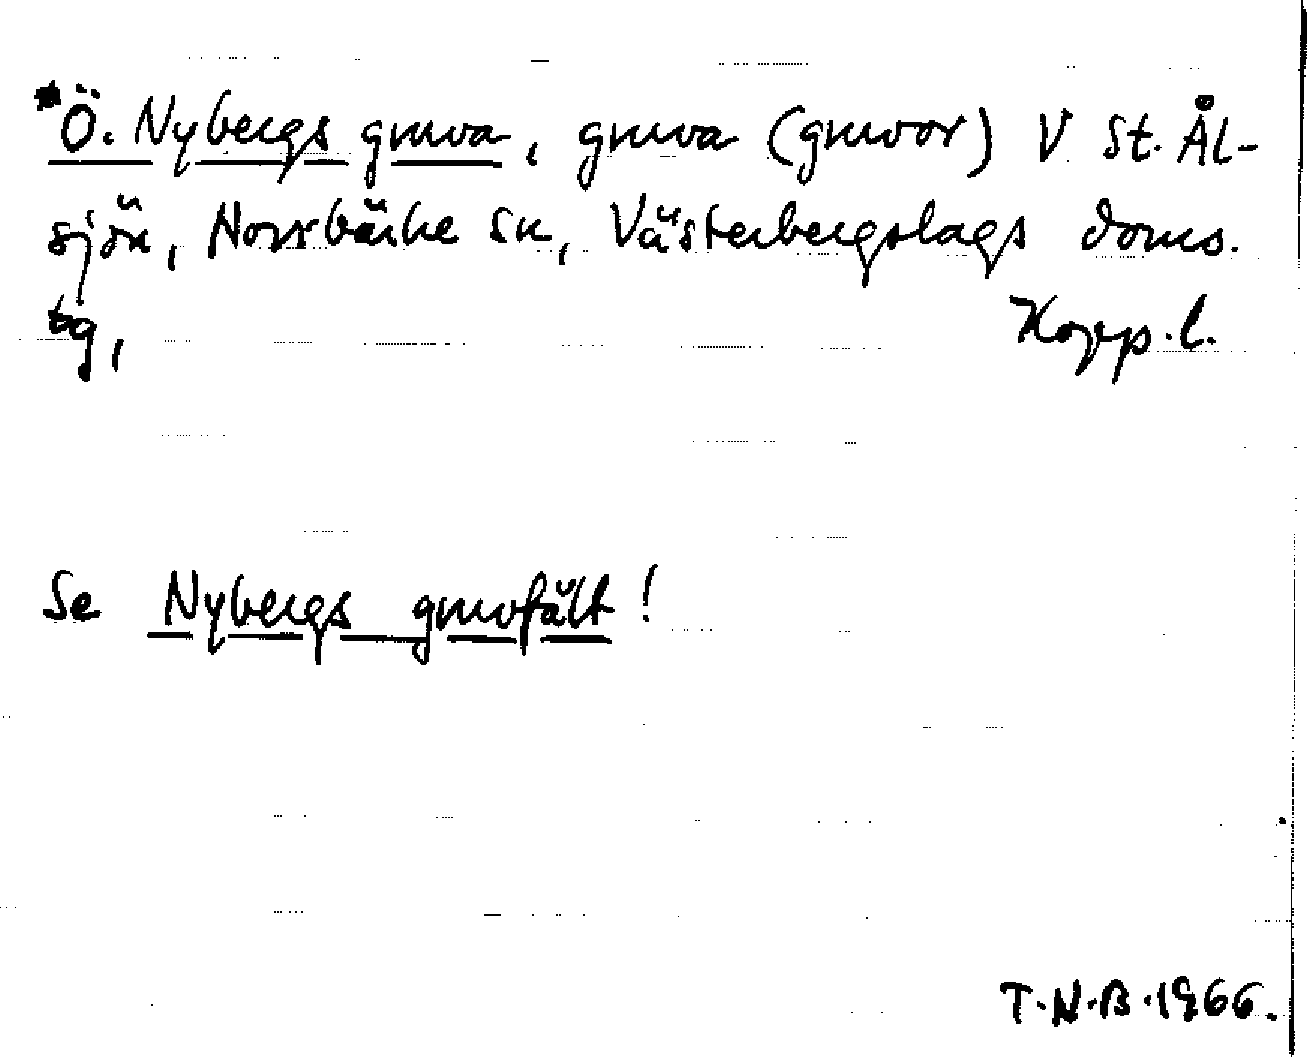 *Ö. Nybergs gruva, gruva (gruvor) V St. Ål-
sjön, Norrbärke sn, Västerbergslags doms.
tg, Kopp.l.
Se Nybergs gruvfält!
T.N.B. 1966.